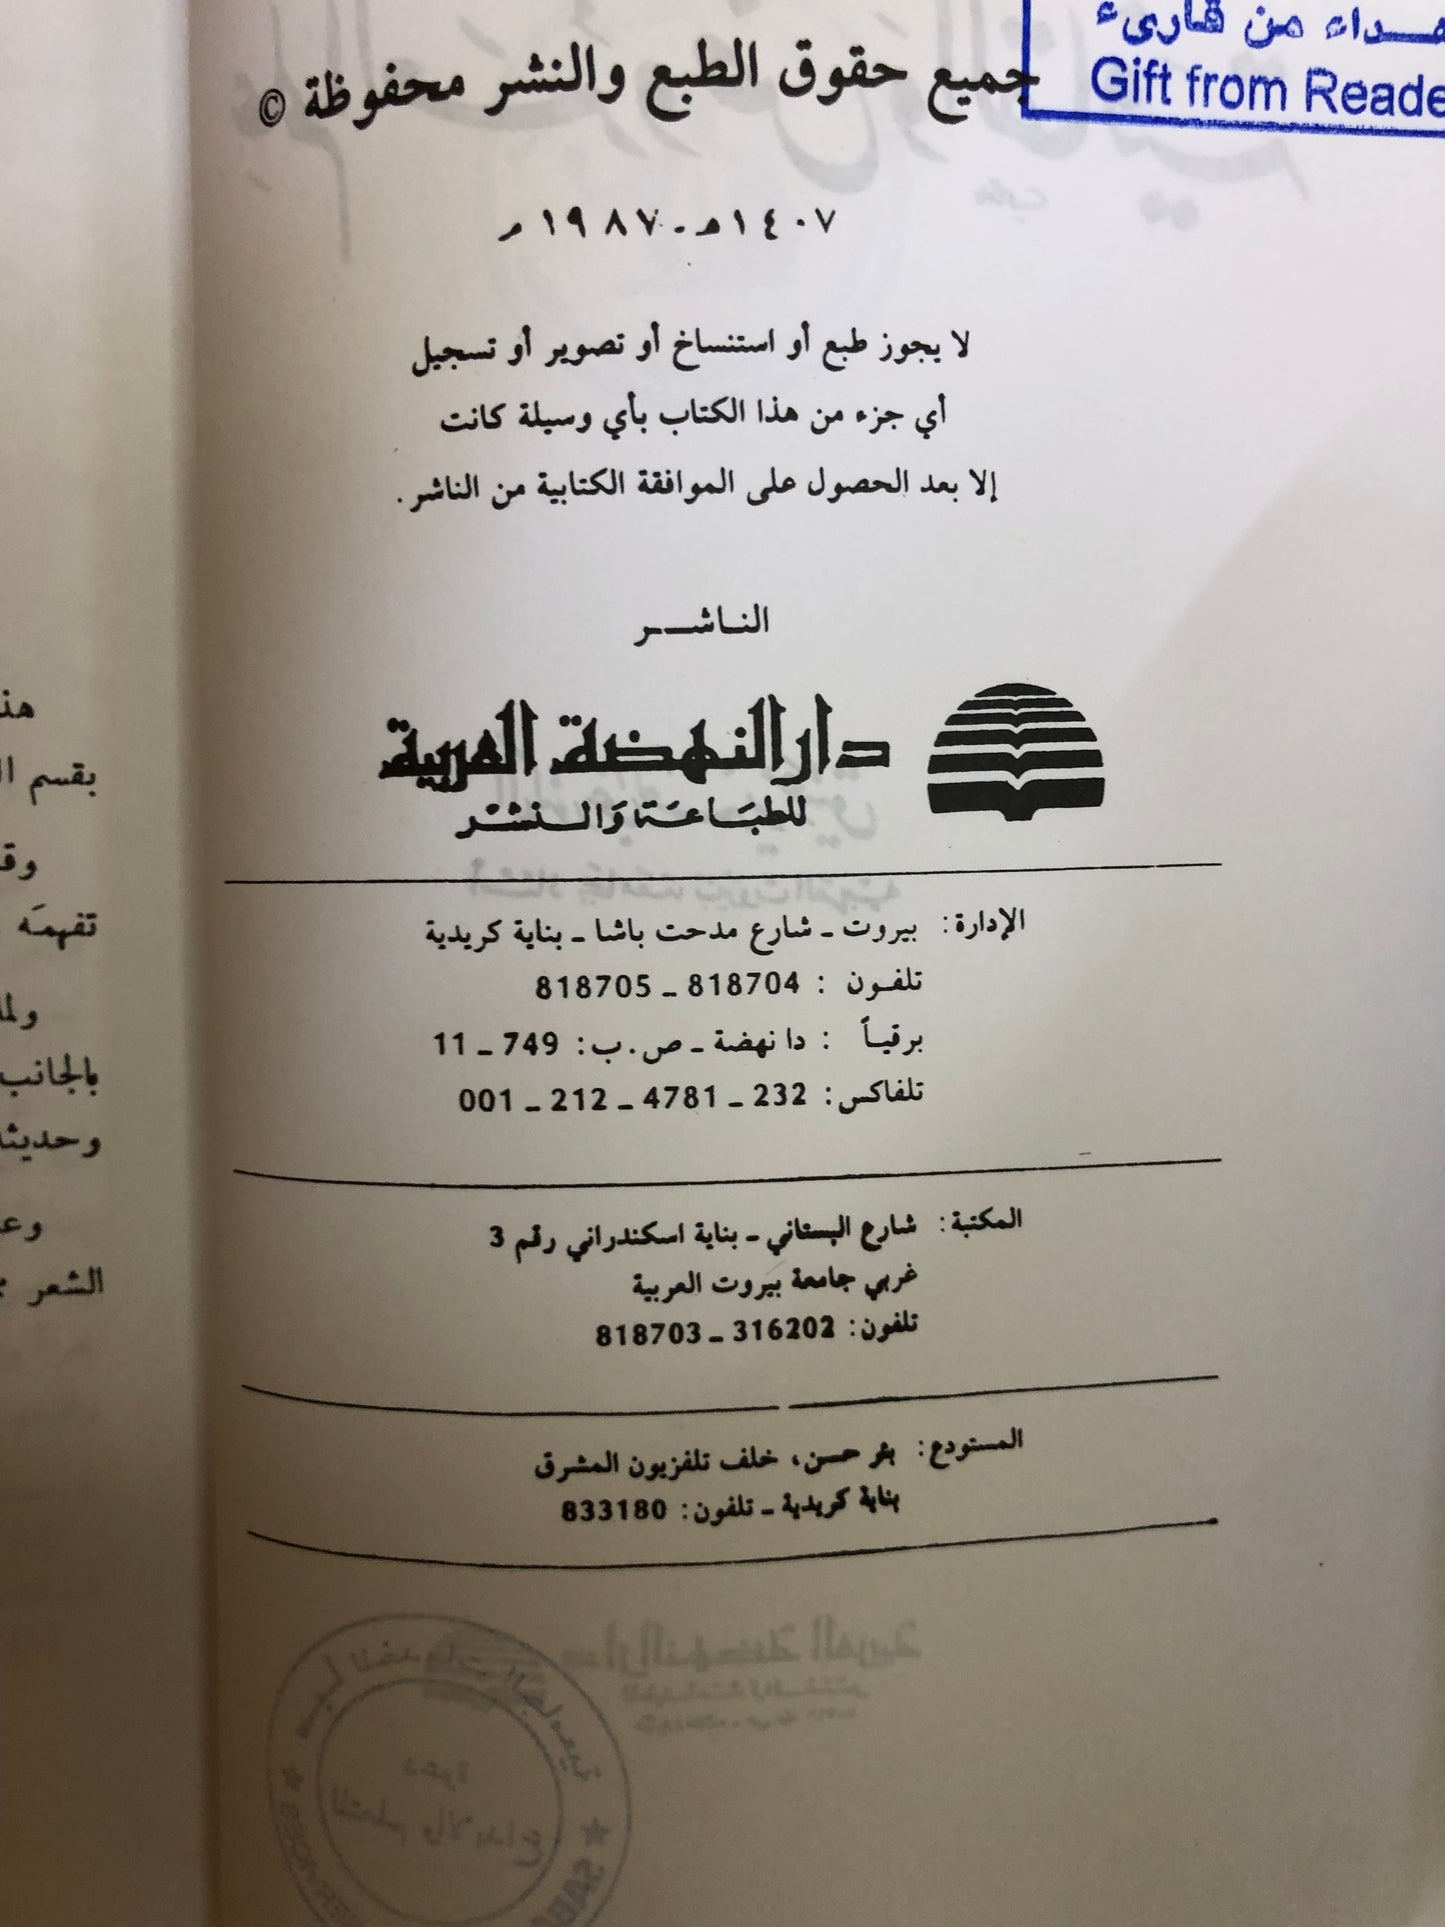 إهداء من قارىء
Gift from Reade
جميع حقوق الطبع والنشر محفوظة ©
١٤٠٧ هـ - ١٩٨٧ م
لا يجوز طبع أو استنساخ أو تصوير أو تسجيل
أي جزء من هذا الكتاب بأي وسيلة كانت
إلا بعد الحصول على الموافقة الكتابية من الناشر.
الناشر
دار النهضة العربية
للطباعة والنشر
الإدارة: بيروت - شارع مدحت باشا - بناية كريدية
تلفون : 818704 - 818705
برقياً : دا نهضة - ص.ب: 749 - 11
تلفاكس: 232 - 4781 - 212 - 001
المكتبة: شارع البستاني - بناية اسكندراني رقم 3
غربي جامعة بيروت العربية
تلفون: 316202 - 818703
المستودع: بئر حسن، خلف تلفزيون المشرق
بناية كريدية - تلفون: 833180
بقسم
تفهمَه
بالجانب
الشعر